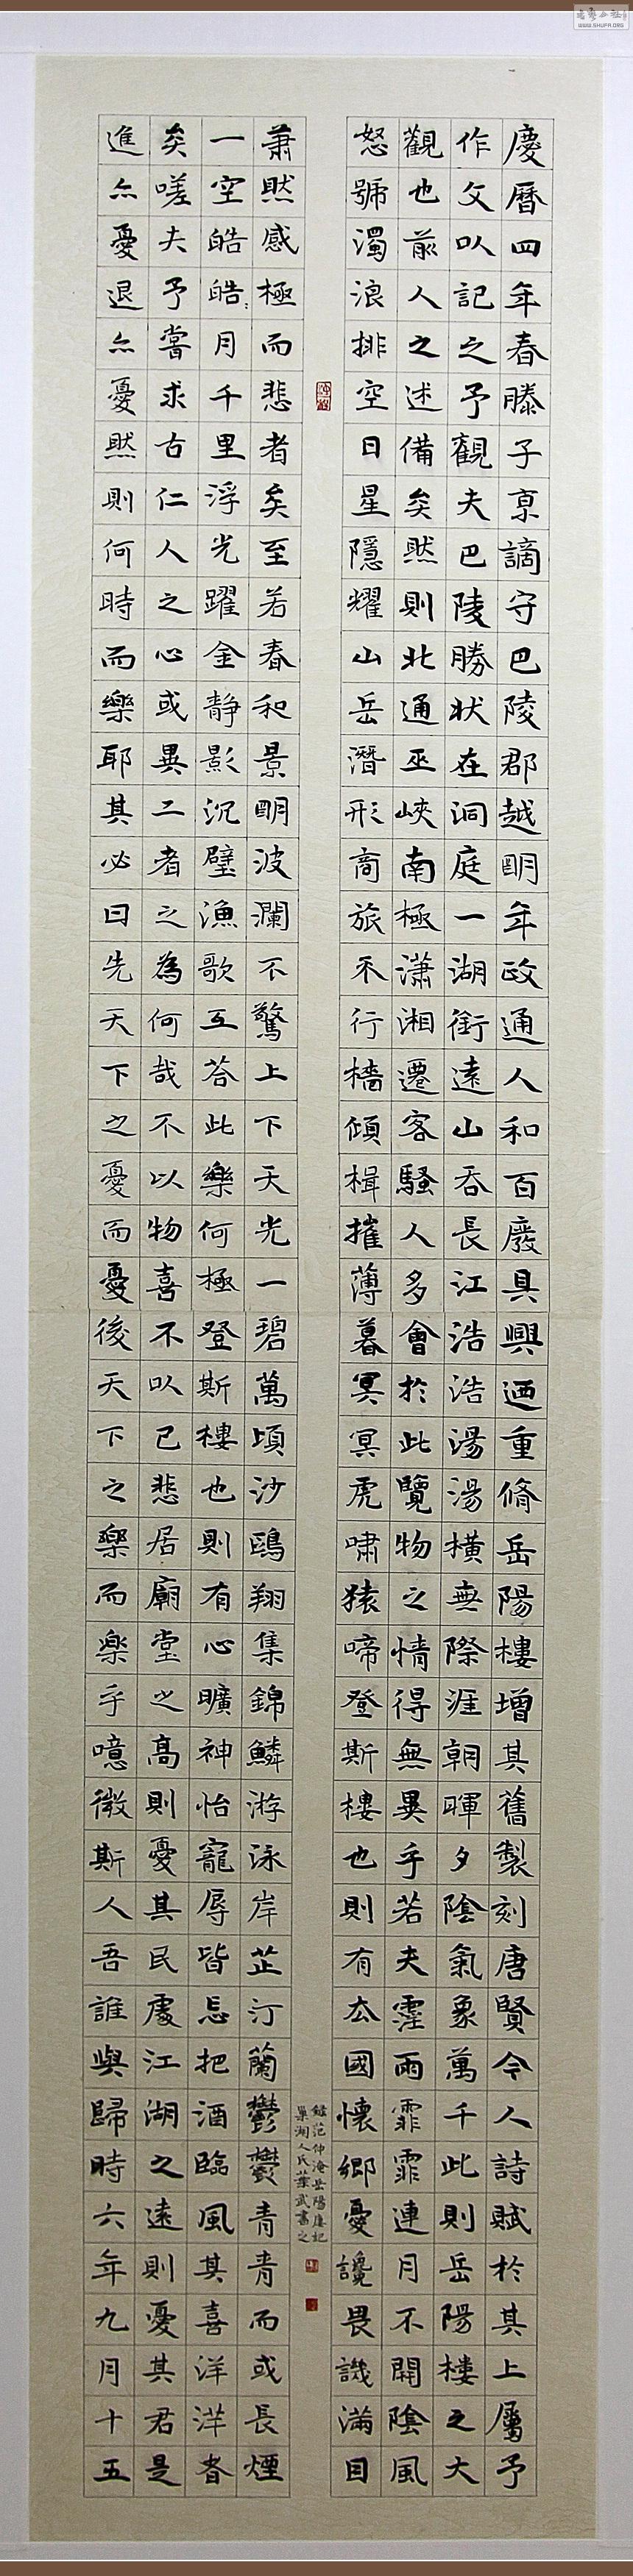 慶曆四年春滕子京謫守巴陵郡越明年政通人和百廢具興迺重脩岳陽樓增其舊製刻唐賢今人詩賦於其上屬予
作文以記之予觀夫巴陵勝狀在洞庭一湖銜遠山吞長江浩浩湯湯橫無際涯朝暉夕陰氣象萬千此則岳陽樓之大
觀也前人之述備矣然則北通巫峽南極瀟湘遷客騷人多會於此覽物之情得無異乎若夫霪雨霏霏連月不開陰風
怒號濁浪排空日星隱耀山岳潛形商旅不行檣傾楫摧薄暮冥冥虎嘯猿啼登斯樓也則有去國懷鄉憂讒畏譏滿目
蕭然感極而悲者矣至若春和景明波瀾不驚上下天光一碧萬頃沙鷗翔集錦鱗游泳岸芷汀蘭鬱鬱青青而或長煙
一空皓皓月千里浮光躍金静影沉璧漁歌互答此樂何極登斯樓也則有心曠神怡寵辱皆忘把酒臨風其喜洋洋者
矣嗟夫予嘗求古仁人之心或異二者之為何哉不以物喜不以己悲居廟堂之高則憂其民處江湖之遠則憂其君是
進亦憂退亦憂然則何時而樂耶其必曰先天下之憂而憂後天下之樂而樂乎噫微斯人吾誰與歸時六年九月十五
錄范仲淹岳陽樓記
巢湖人氏葉武書之
WWW.SHUFA.ORG